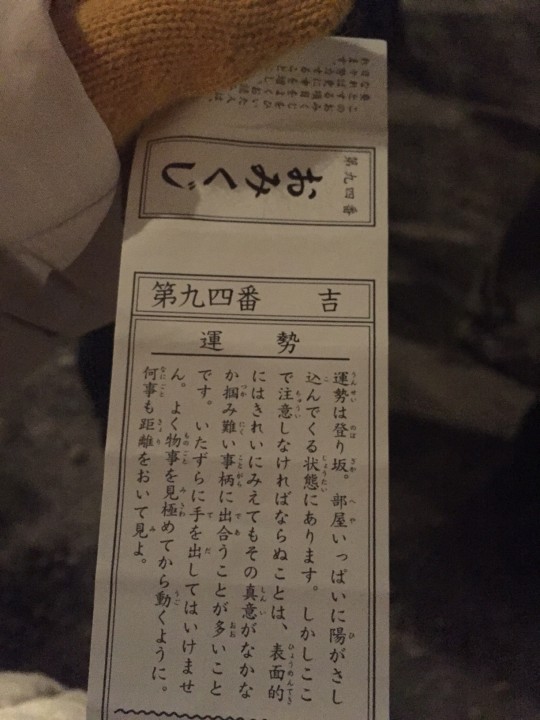 第九四番
おみくじ
第九四番 吉
運勢
運勢は登り坂。部屋いっぱいに陽がさし
込んでくる状態にあります。しかしここ
で注意しなければならぬことは、表面的
にはきれいにみえてもその真意がなかな
か掴み難い事柄に出合うことが多いこと
です。いたずらに手を出してはいけませ
ん。よく物事を見極めてから動くように。
何事も距離をおいて見よ。